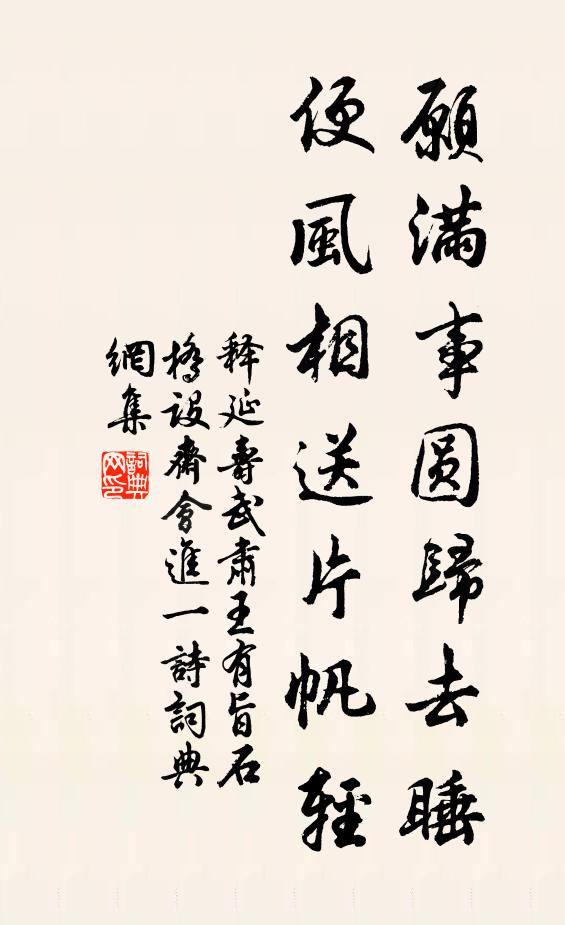 願滿事圓歸去睡
便風相送片帆輕
释延壽武肅王有旨石
橋設齋會進一詩詞典
網集
詞典網印